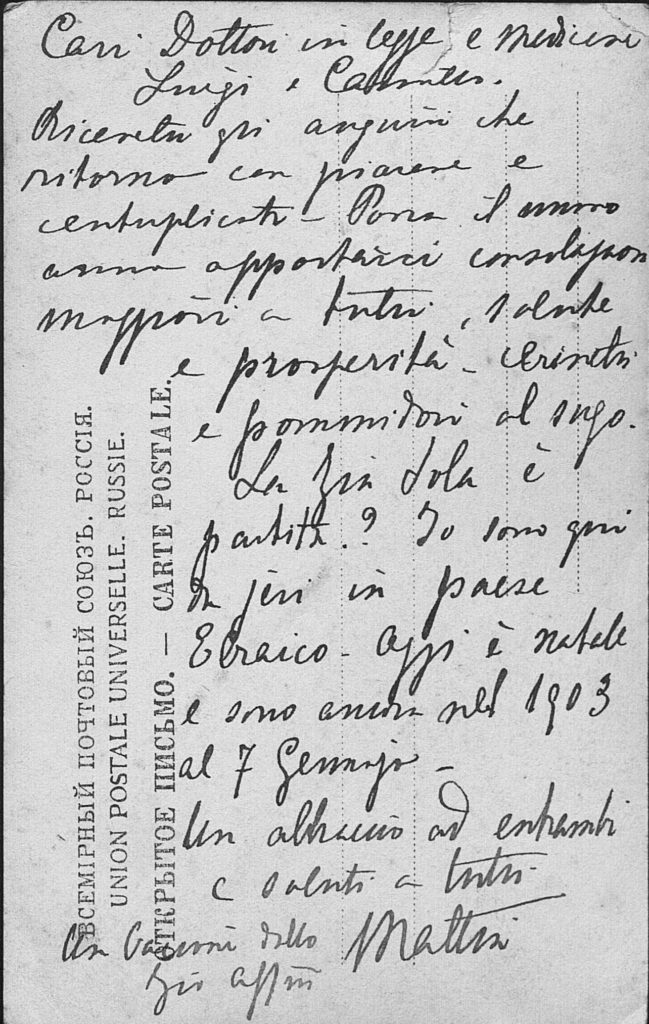 Cari Dottori in legge e medicina
Luigi e
Ricevetti gli auguri che
ritorno con piacere e
centuplicati - Possa il nuovo
anno apportarci consolazioni
maggiori a tutti, salute
e prosperità -
e pommidori al sugo.
La Zia Lola è
partita.? Io sono qui
da jeri in paese
Ebraico - Oggi è natale
e sono ancora nel 1903
al 7 Gennajo -
Un abbraccio ad entrambi
e saluti a tutti.
Un bacioni dallo
zio aff
ВСЕМІРНЫЙ ПОЧТОВЫЙ СОЮЗЪ. РОССІЯ.
UNION POSTALE UNIVERSELLE. RUSSIE.
ОТКРЫТОЕ ПИСЬМО. — CARTE POSTALE.